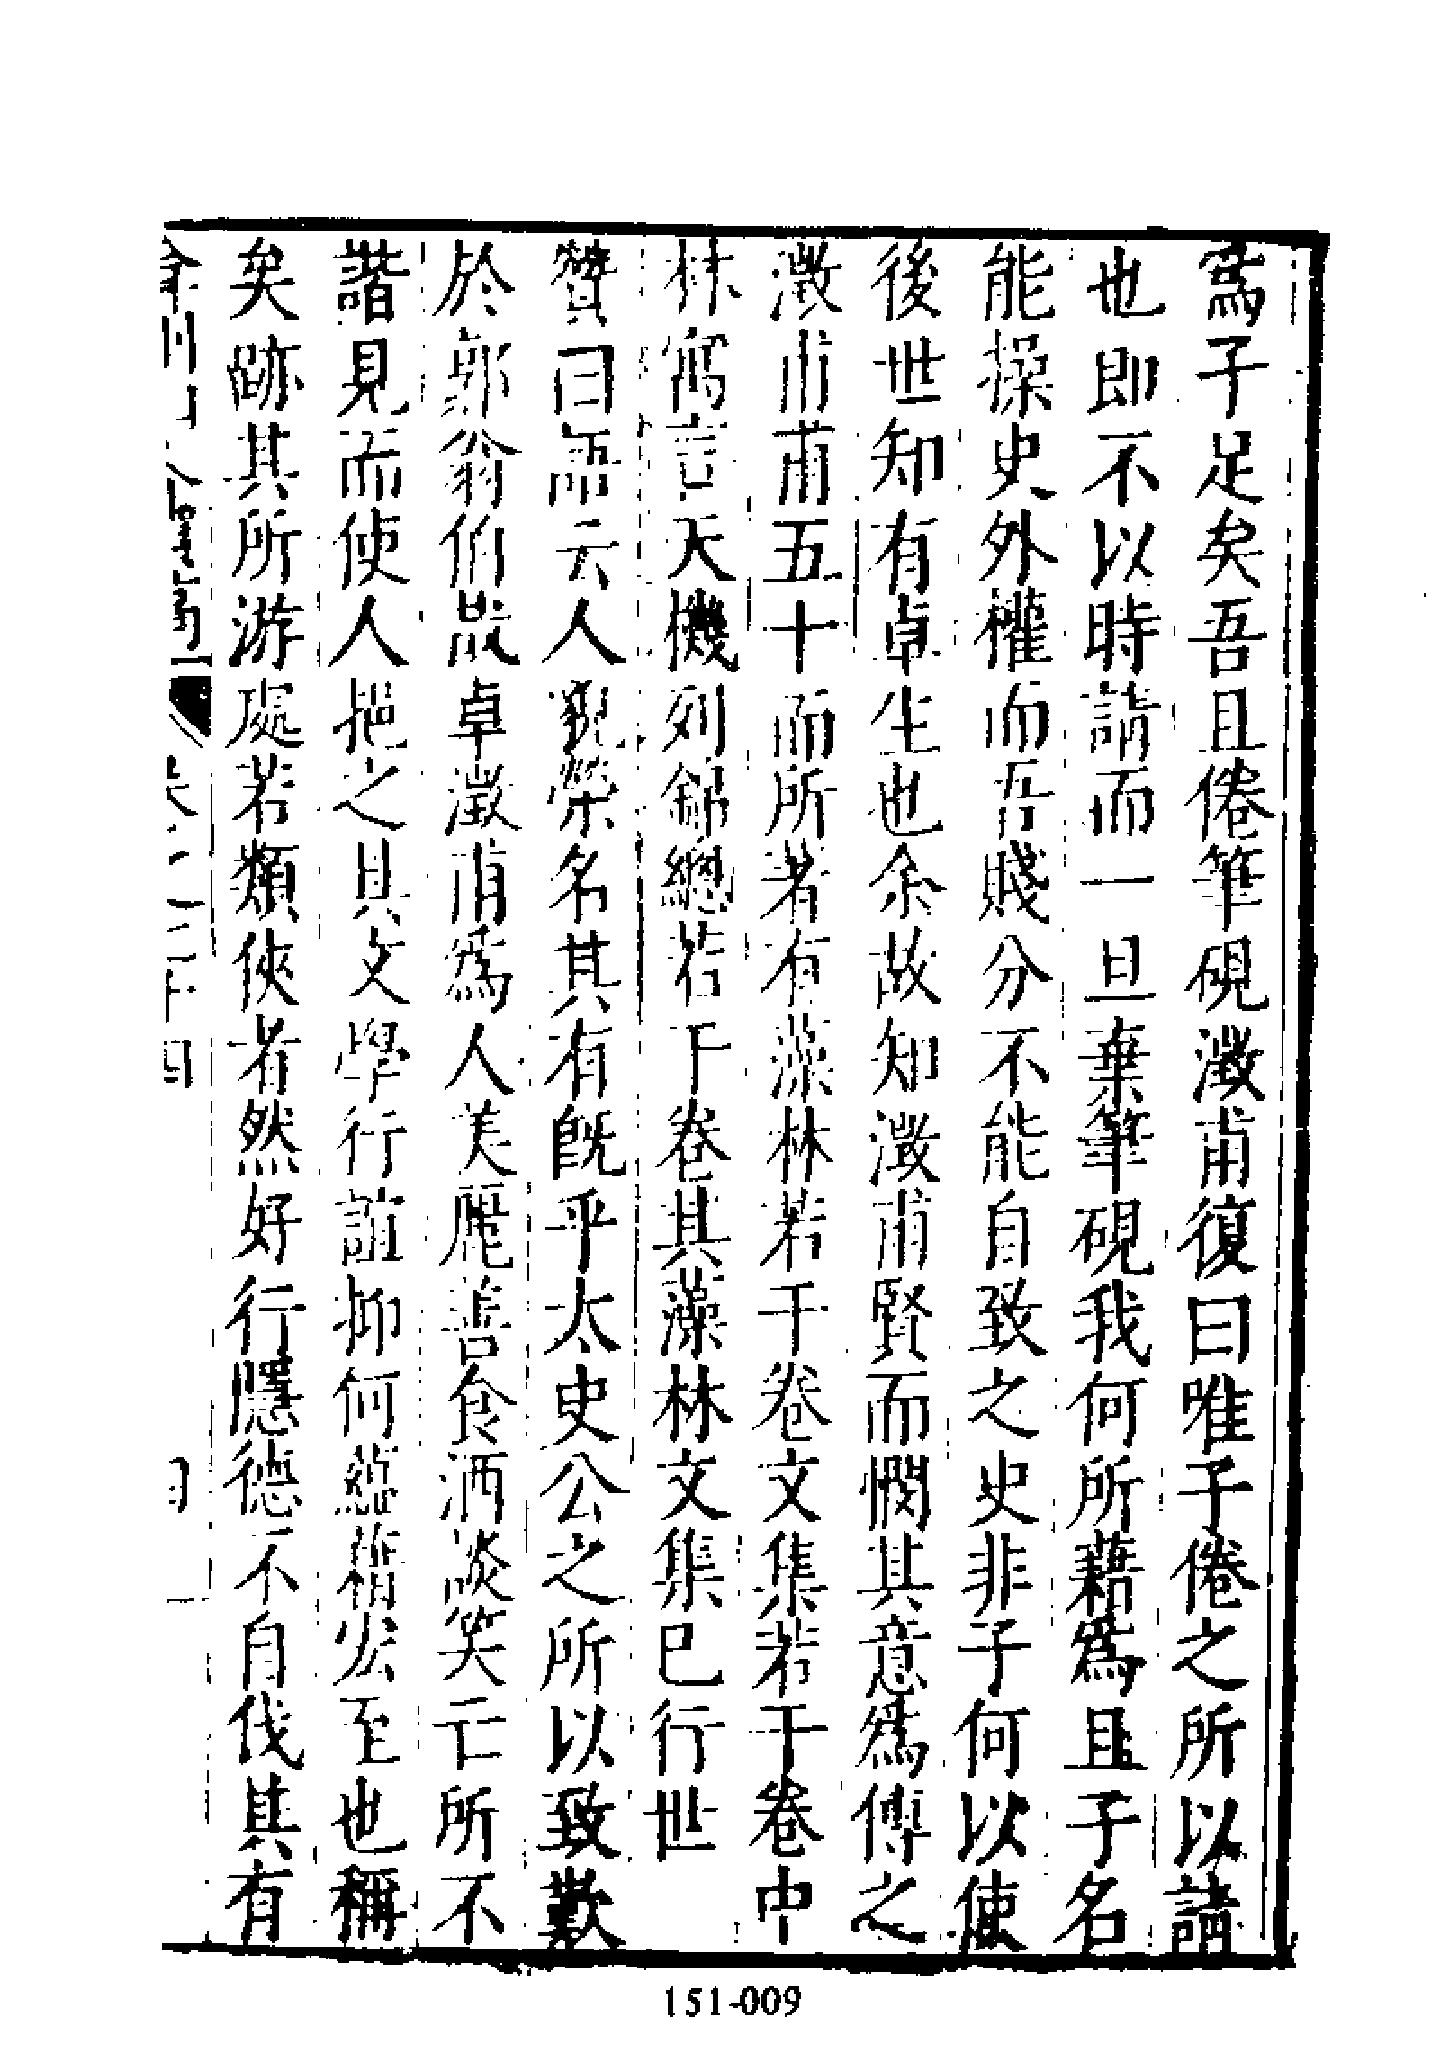 為子足矣吾且倦筆硯澂甫復曰唯子倦之所以請
也即不以時請而一旦棄筆硯我何所藉為且子名
能操史外權而吾賤分不能自致之史非子何以使
後世知有卓生也余故知澂甫賢而憫其意為傳之
澂甫甫五十而所著有藻林若干卷文集若干卷中
林寓言天機列錦總若干卷其藻林文集已行世
贊曰語云人貌榮名其有旣乎太史公之所以致歎
於郭翁伯哉卓澂甫為人美麗善食酒談笑亡所不
諧見而使人挹之其文學行誼抑何蘊藉宏至也稱
矣跡其所游處若類俠者然好行隱德不自伐其有
四
151-009